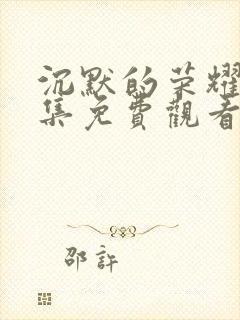 沉默的荣耀
集免費觀看
邵許